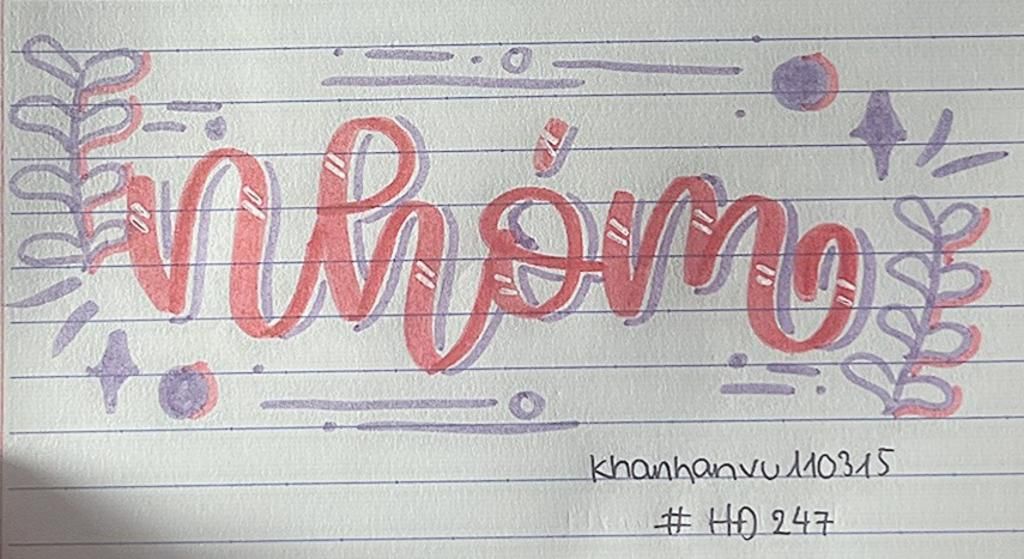 nhóm
khanhanvu110315
# HĐ 247